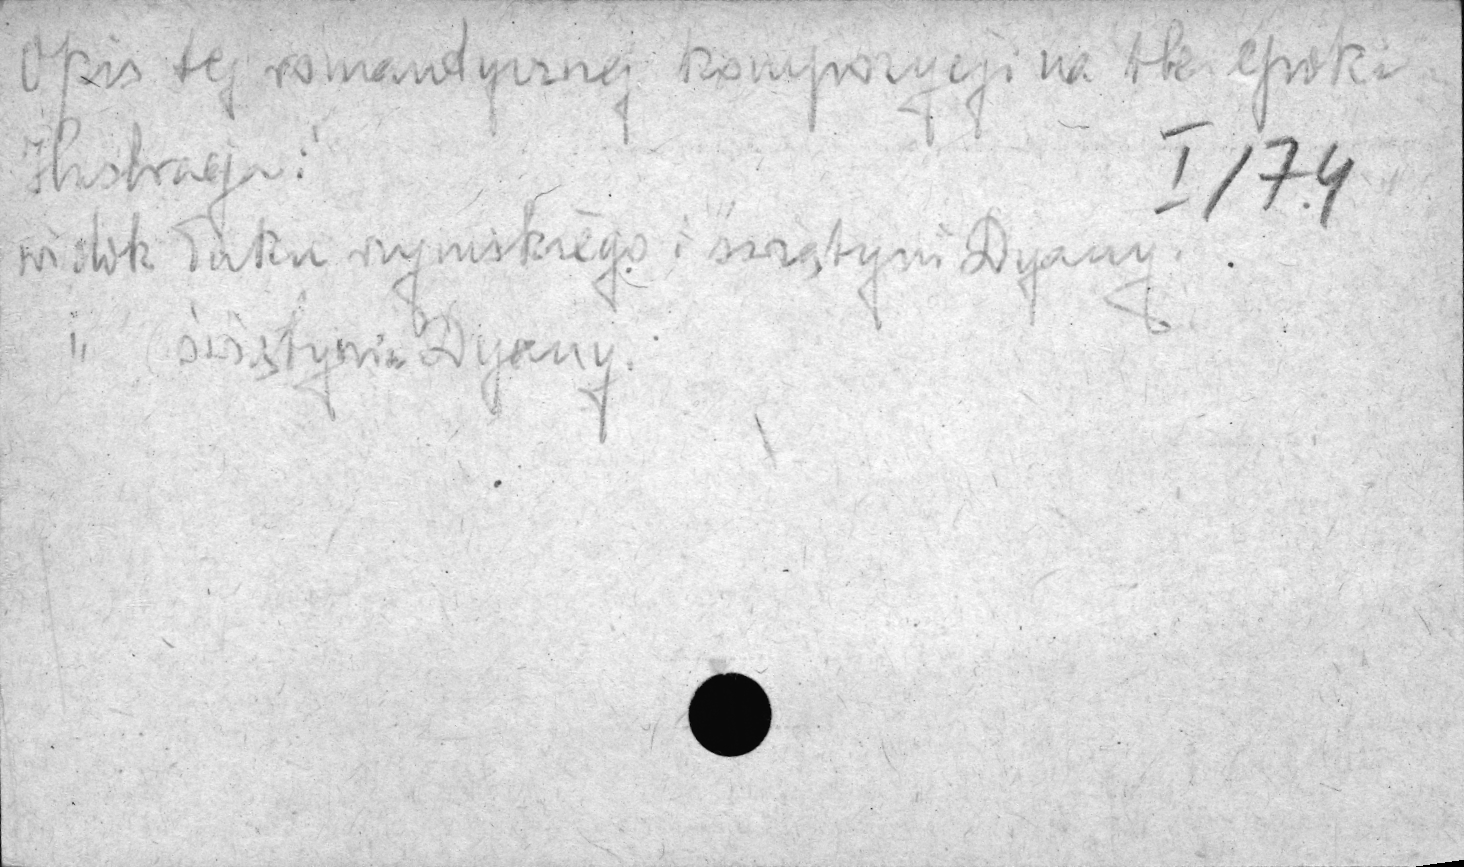 Opis tej romantycznej kompozycji na tle epoki
Ilustracja:
I/74
widok łuku rzymskiego i świątyni Dyany.
" świątynia Dyany.